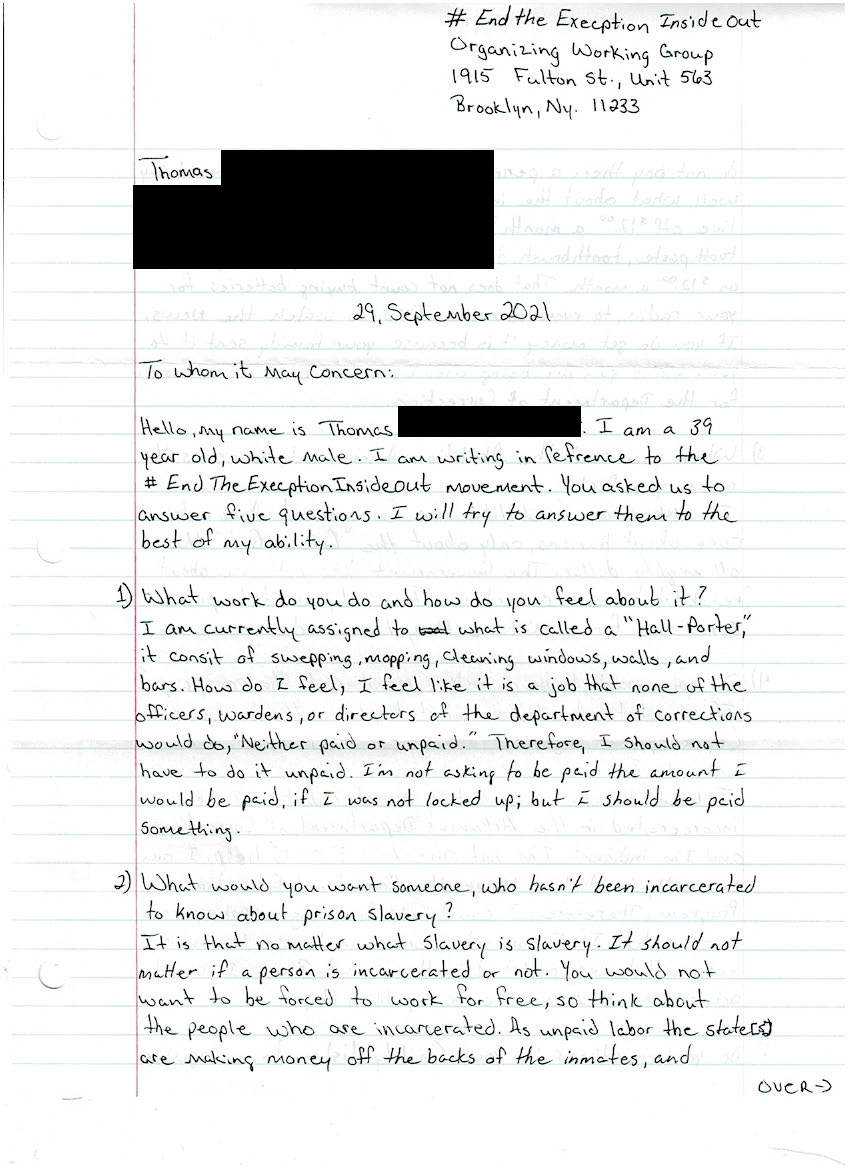 # End the Execption Inside Out
Organizing Working Group
1915 Fulton St., Unit 563
Brooklyn, Ny. 11233
Thomas
29, September 2021
To whom it May Concern:
Hello, my name is Thomas . I am a 39
year old, white male. I am writing in refrence to the
# End The Execption Insideout movement. You asked us to
answer five questions. I will try to answer them to the
best of my ability.
1) What work do you do and how do you feel about it?
I am currently assigned to what is called a "Hall-Porter,"
it consit of swepping, mopping, cleaning windows, walls, and
bars. How do I feel, I feel like it is a job that none of the
officers, wardens, or directors of the department of corrections
would do, "Neither paid or unpaid." Therefore, I should not
have to do it unpaid. I'm not asking to be paid the amount I
would be paid, if I was not locked up; but I should be paid
something.
2) What would you want someone, who hasn't been incarcerated
to know about prison slavery?
It is that no matter what slavery is slavery. It should not
matter if a person is incarcerated or not. You would not
want to be forced to work for free, so think about
the people who are incarcerated. As unpaid labor the state(s)
are making money off the backs of the inmates, and
OVER→